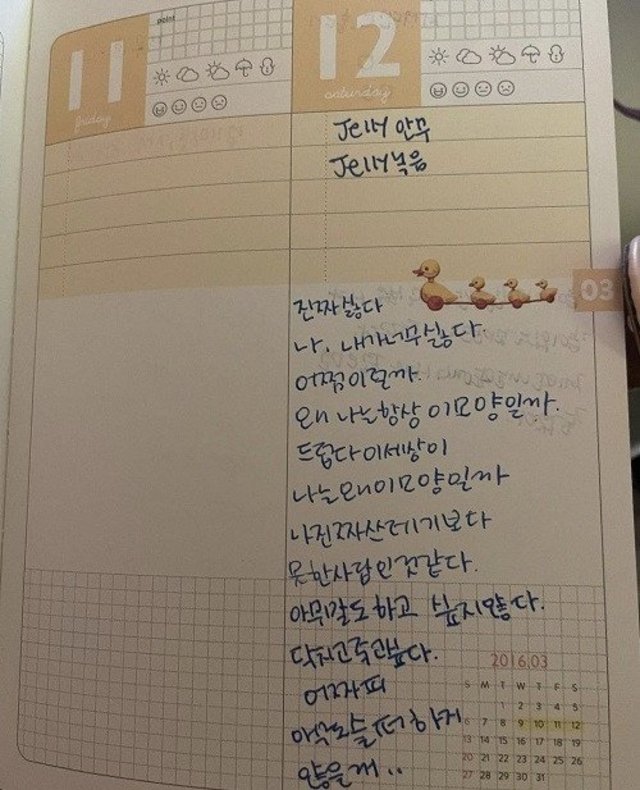 11
friday
point
12
saturday
Jelly 안무
Jelly 녹음
03
진짜싫다
나. 내가너무싫다.
어쩜이럴까.
왜 나는항상 이모양일까.
드럽다이세상이
나는왜이모양일까
나진짜산레기보다
못한사람인것같다.
아무말도하고 싶지않다.
닥치고죽고싶다.
어짜피
아무도슬퍼하게
않을게..
2016.03
S M T W T F S
1 2 3 4 5
6 7 8 9 10 11 12
13 14 15 16 17 18 19
20 21 22 23 24 25 26
27 28 29 30 31